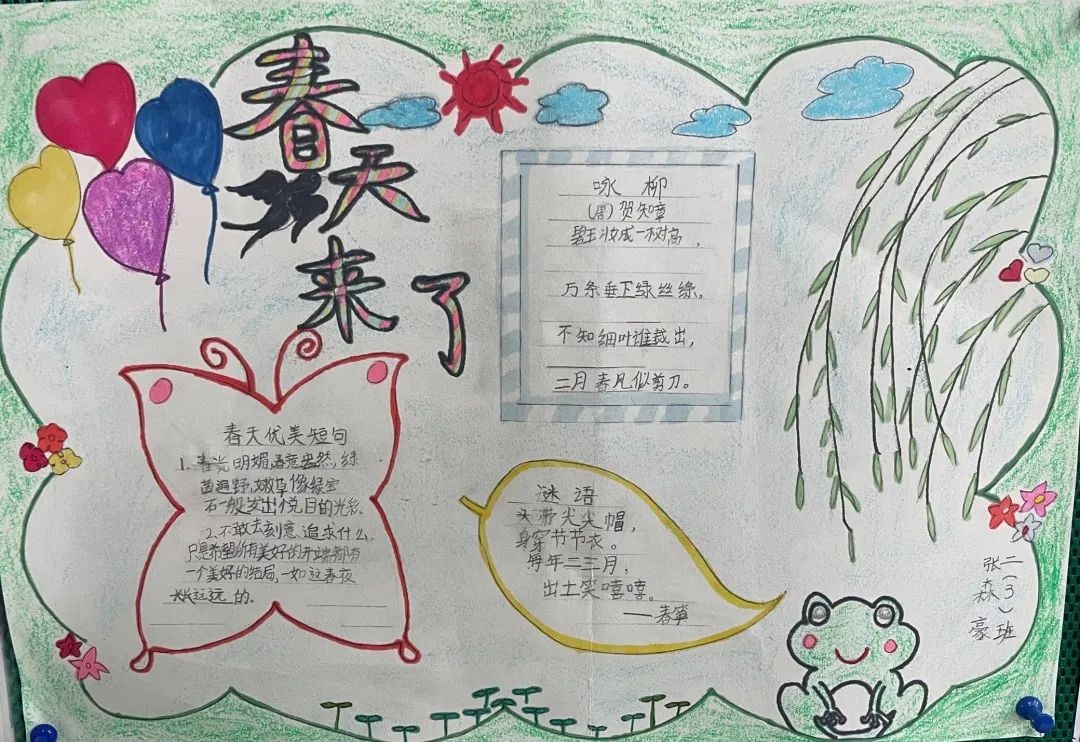 春天来了
咏 柳
(唐) 贺知章
碧玉妆成一树高,
万条垂下绿丝绦。
不知细叶谁裁出,
二月春风似剪刀。
春天优美短句
1. 春光明媚,春意盎然,绿
茵遍野,嫩草像绿宝
石一般发出悦目的光彩.
2.不敢去刻意追求什么.
只是希望所有美好的开端都有
一个美好的结局,一如这春夜
长长远远的.
谜 语
头带尖尖帽,
身穿节节衣。
每年二三月,
出土笑嘻嘻。
——春笋
二(3)班
张森豪